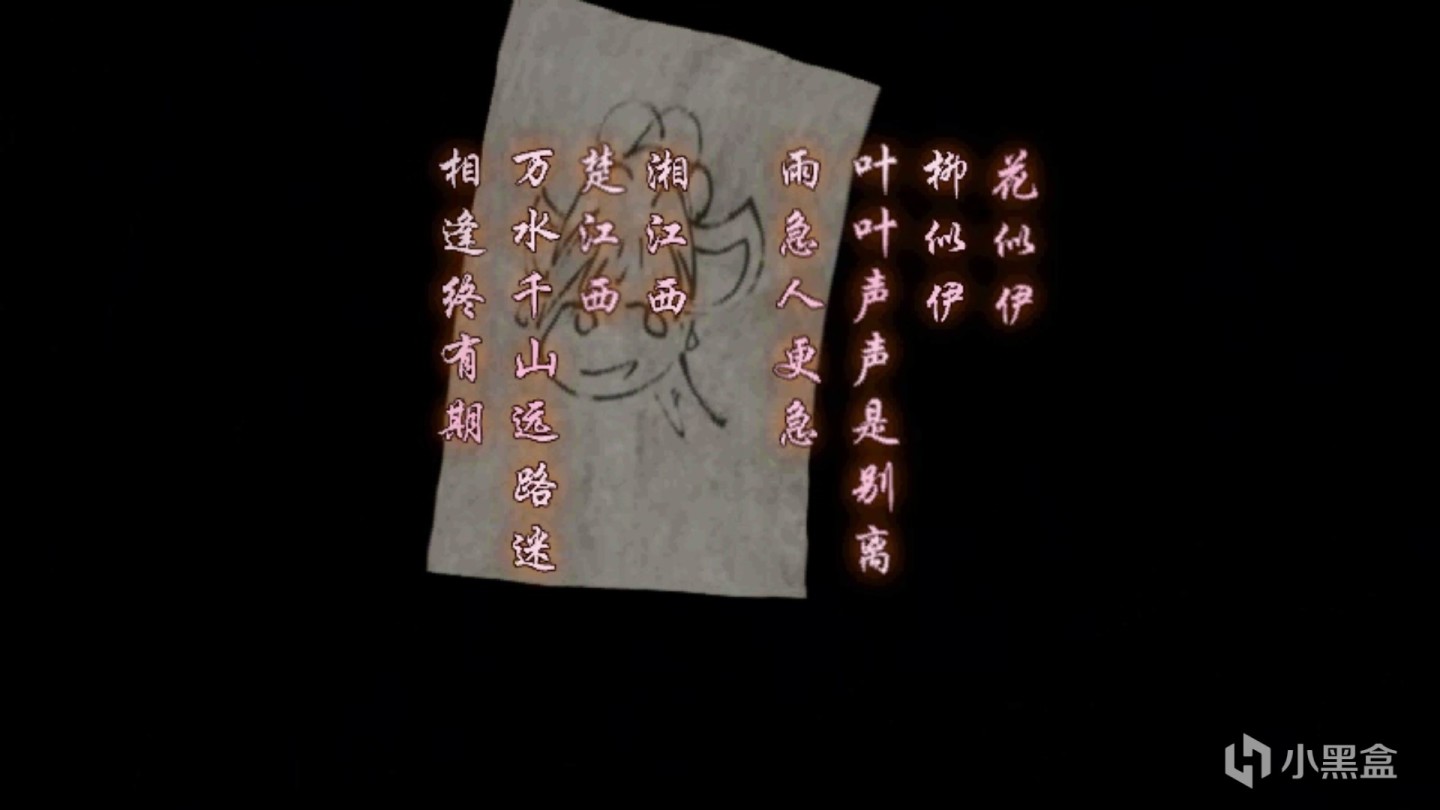 花似伊
柳似伊
叶叶声声是别离
雨急人更急
湘江西
楚江西
万水千山远路迷
相逢终有期
小黑盒